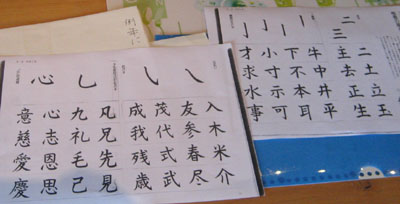 二三
二土立玉
主去正生
牛中井平
下不本耳
小寸示可
才求水事
入木米介
友参春尽
茂代式武
成我残歳
心
凡兄先見
九礼毛己
心志恩思
意慈愛慶